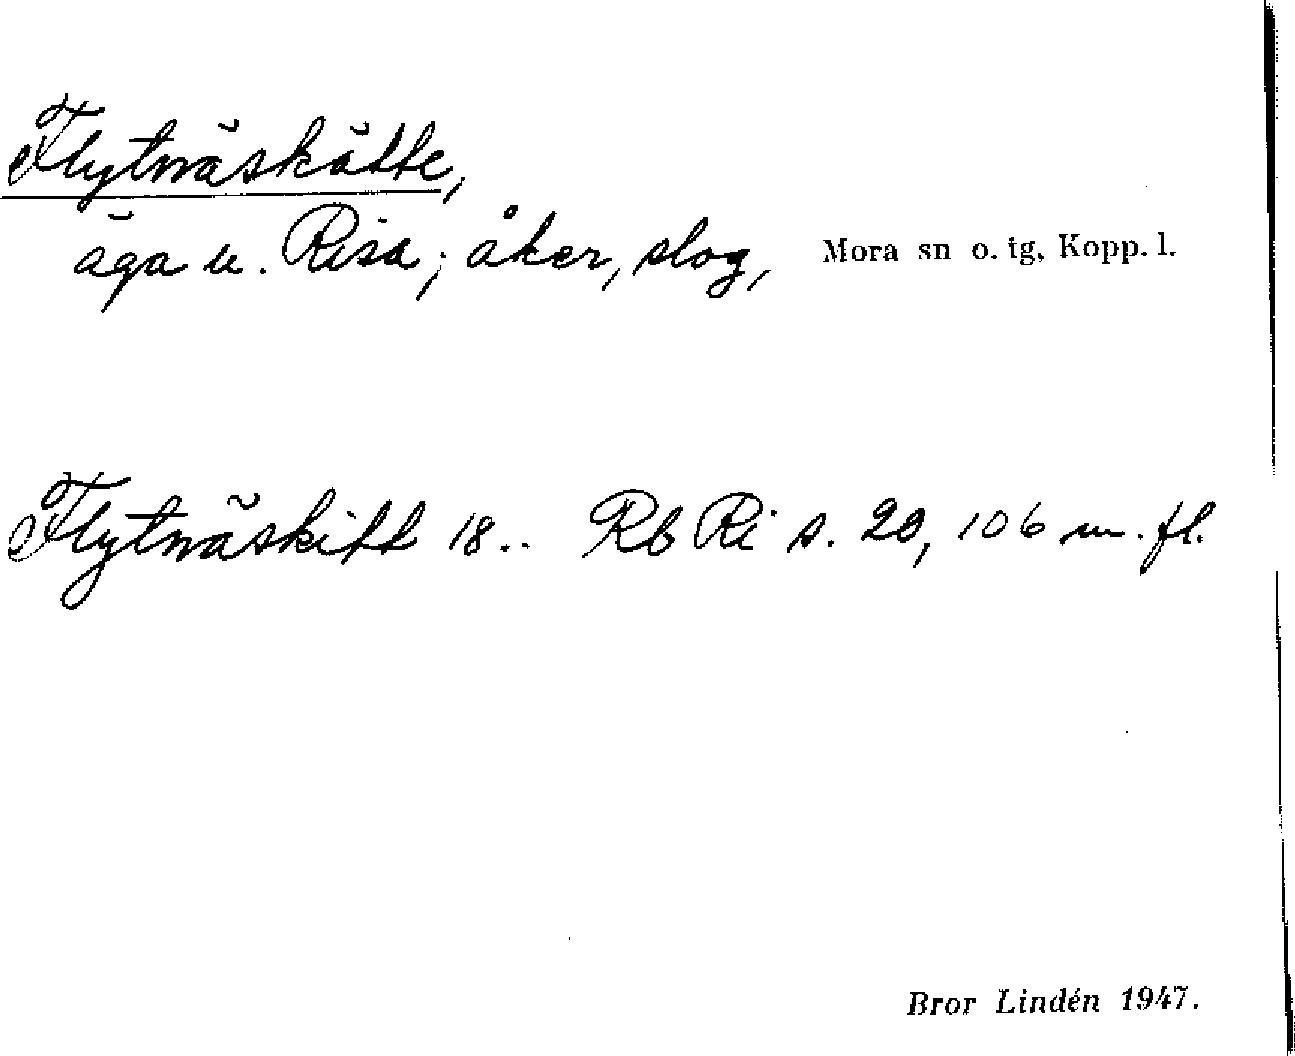 Flytnäskätte,
äga u. Risa; åker, slog, Mora sn o. tg, Kopp. l.
Flytnäskitt 18.. Rb Ri s. 20, 106 m. fl.
Bror Lindén 1947.